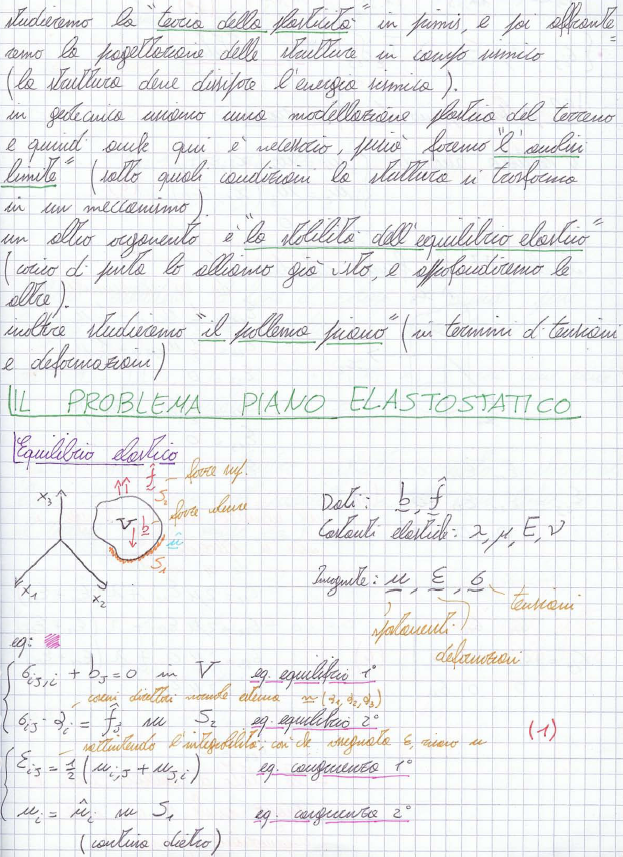 studieremo la "teoria della plasticità" in primis, e poi affronte=
remo la progettazione delle strutture in campo sismico
(la struttura deve dissipare l'energia sismica).
in geotecnica usiamo una modellazione plastica del terreno
e quindi anche qui è necessario, perciò faremo "l'analisi
limite" (sotto quali condizioni la struttura si trasforma
in un meccanismo).
un altro argomento è "la stabilità dell'equilibrio elastico"
(carico di punta lo abbiamo già visto, e approfondiremo le
altre).
inoltre studieremo "il problema piano" (in termini di tensioni
e deformazioni)
IL PROBLEMA PIANO ELASTOSTATICO
Equilibrio elastico
f̂ - forze sup.
x₃ S₂
V b forze
û
S₁
x₁ x₂
Dati: b, f̂
Costanti elastiche: λ, μ, E, ν
Incognite: u, ε, σ - tensioni
spostamenti
deformazioni
eq:
σij,i + bj = 0 in V eq. equilibrio 1°
coseni direttori normale esterna n (α₁, α₂, α₃)
σij · αi = f̂j su S₂ eq. equilibrio 2°
(1)
sottintendo l'integrabilità, così che assegnata ε, ricavo u
εij = 1/2 (ui,j + uj,i) eq. congruenza 1°
ui = ûi su S₁ eq. congruenza 2°
(continua dietro)